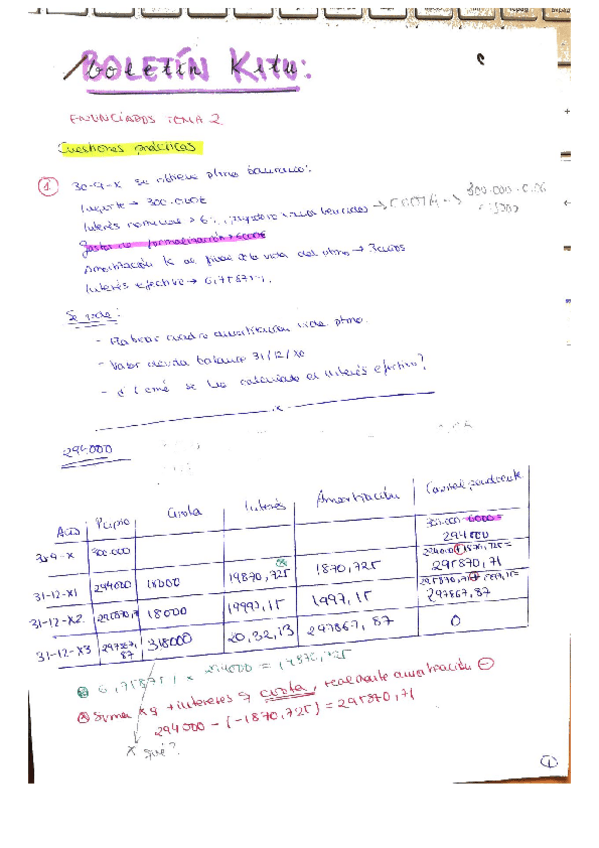 BOLETÍN KITU:
ENUNCIADOS TEMA 2
Cuestiones prácticas
1 30-9-X se obtiene ptmo bancario:
Importe → 300.000€
Interés nominal → 6%, → CUOTA → 300.000 · 0.06
Gastos de formalización → 6000€
Amortización K al final de la vida del ptmo → 3 años
Interés efectivo → 6,75871%.
Se pide:
- Elaborar cuadro amortización ptmo.
- Valor deuda balance 31/12/X0
- ¿Cómo se ha calculado el interés efectivo?
x
294.000
Año Cuota Interés Amortización Capital pendiente
30-9-X 300.000 300.000 - 6000 =
294000
31-12-X1 294000 18000 19870,725 1870,725 294000 + 1870,725 =
295870,71
31-12-X2 295870,7 18000 19997,15 1997,15
297867,87
31-12-X3 297867,87 318000 20,132,13 297867,87 0
6,75871% x 294000 = 19870,725
Suma + intereses cuota, realmente amortización (-)
294000 - (-1870,725) = 295870,71
x ¿qué?
1